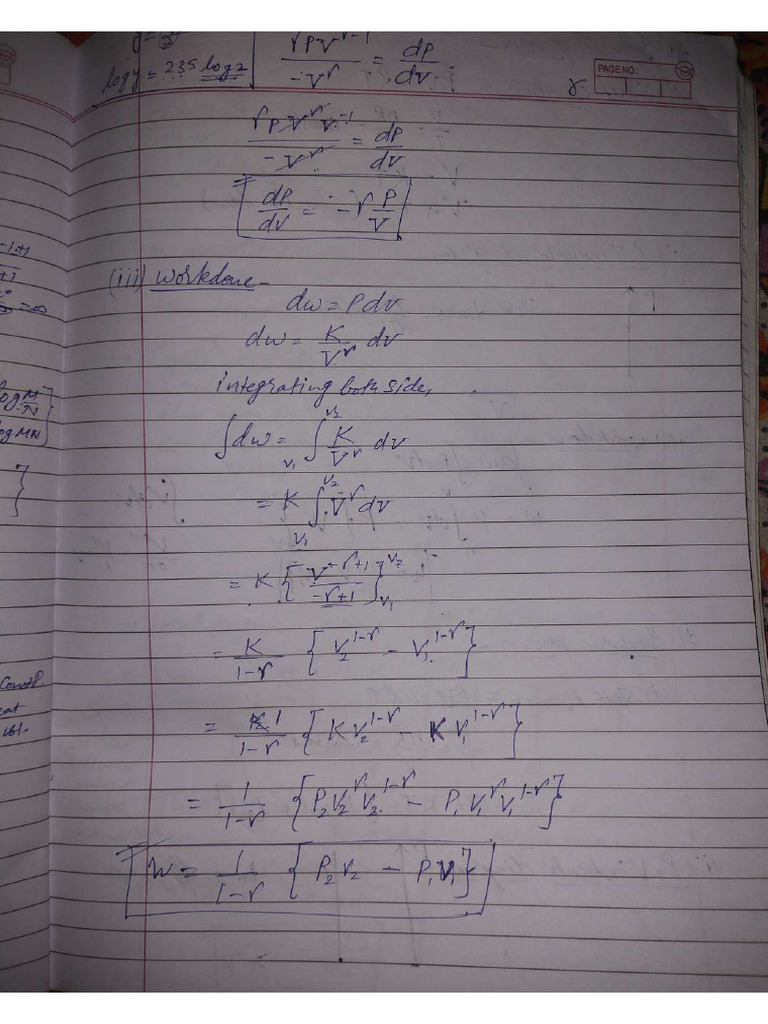 y = 2
log y = 235 log 2
γPV^γ-1 / -V^γ = dP/dV
PAGE NO.:
γ
γ P V^γ V^-1 / -V^γ = dP/dV
dP/dV = -γ P/V
(iii) workdone -
dw = Pdv
dw = K/V^γ dv
integrating both side,
∫dw = v₁∫v₂ K/V^γ dv
= K v₁∫v₂ V^-γ dv
= K { V^-γ+1 / -γ+1 }v₁ v₂
= K/1-γ { V₂^1-γ - V₁^1-γ }
= 1/1-γ { K V₂^1-γ - K V₁^1-γ }
= 1/1-γ { P₂V₂^γ V₂^1-γ - P₁V₁^γ V₁^1-γ }
W = 1/1-γ { P₂V₂ - P₁V₁ }
-1+1
+1
= ∞
log M/N
log MN
}
Const P.